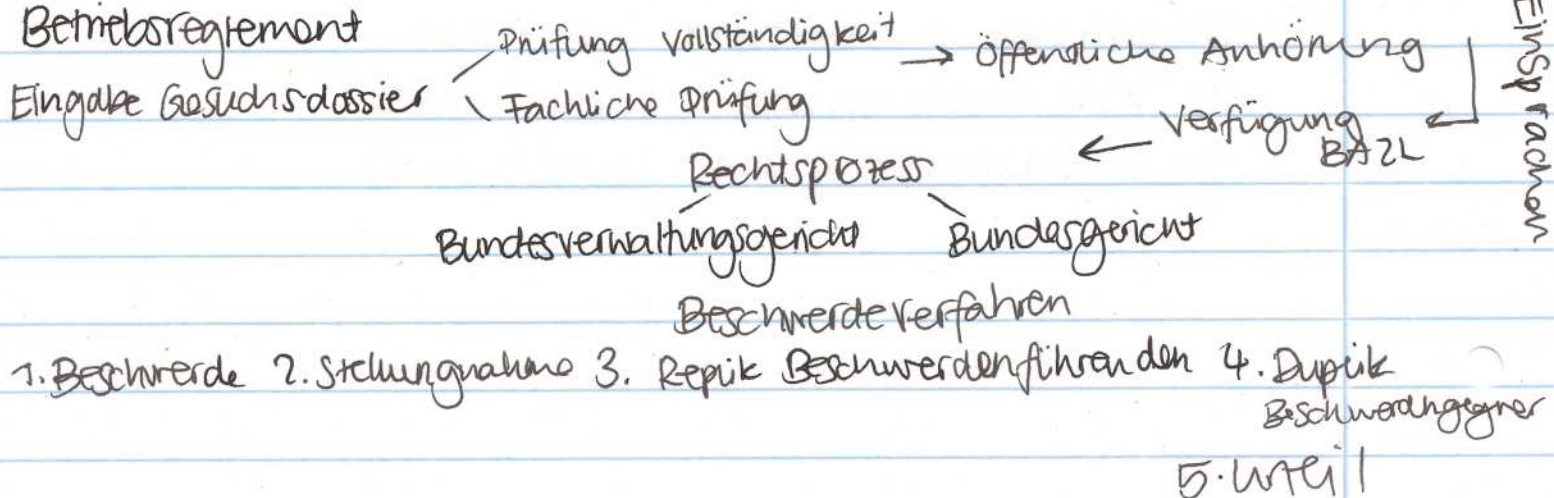 Betriebsreglement
Prüfung Vollständigkeit → Öffentliche Anhörung
Eingabe Gesuchsdossier
Fachliche Prüfung
Einsprachen
Verfügung
← BAZL
Rechtsprozess
Bundesverwaltungsgericht Bundesgericht
Beschwerdeverfahren
1. Beschwerde 2. Stellungnahme 3. Replik Beschwerdenführenden 4. Duplik
Beschwerdngegner
5. Urteil